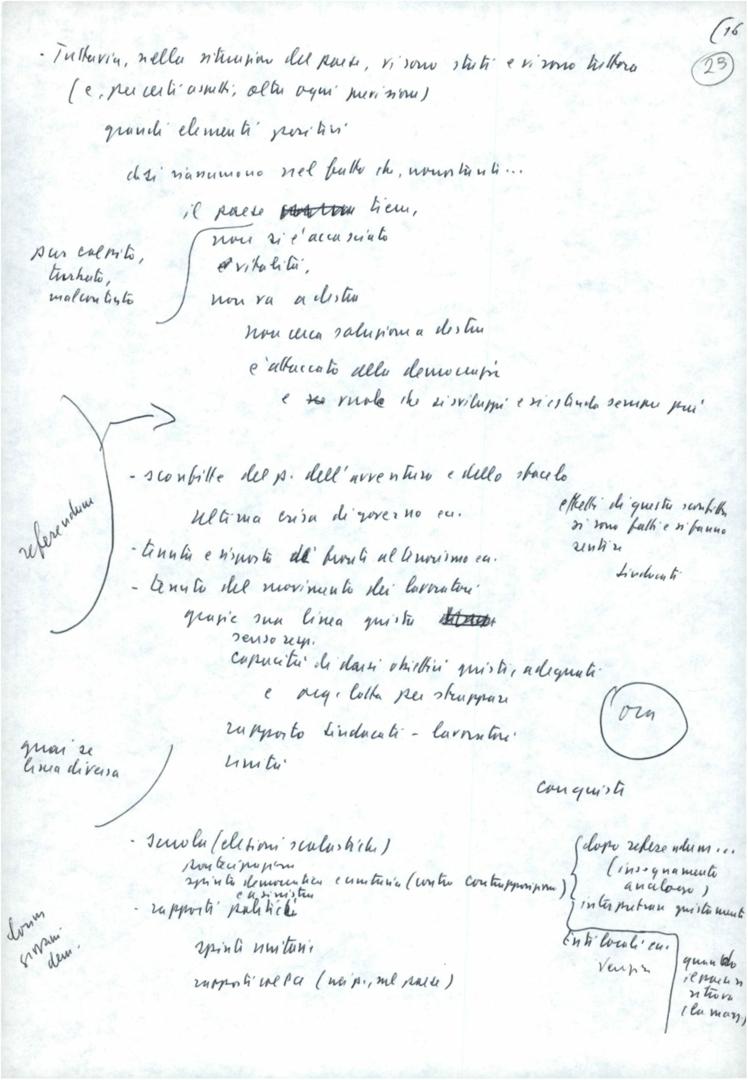 (16
25
- Tuttavia, nella situazione del paese, vi sono stati e vi sono tuttora
(e, per certi aspetti, oltre ogni previsione)
grandi elementi positivi
che si riassumono nel fatto che, nonostante...
il paese tiene,
non si è accasciato
pur colpito,
turbato,
malcontento
è vitalità,
non va a destra
non cerca soluzioni a destra
è attaccato alla democrazia
e vuole che si sviluppi e si estenda sempre più
referendum
- sconfitte del p. dell'avventura e dello sfacelo
ultima crisi di governo ecc.
effetti di queste sconfitte
si sono fatti e si fanno
sentire
Sindacati
- tenuta e risposta di fronte al terrorismo ecc.
- tenuta del movimento dei lavoratori
grazie sua linea giusta
senso resp.
capacità di darsi obiettivi giusti, adeguati
e org. lotta per strappare
ora
rapporto Sindacati - lavoratori
unità
guai se
linea diversa
conquiste
- scuola (elezioni scolastiche)
partecipazione
spinta democratica e unitaria (contro contrapposizioni)
e a sinistra
dopo referendum...
(insegnamento
analogo)
interpretare giustamente
- rapporti politici
donne
giovani
dem.
spinte unitarie
Enti locali ecc.
rapporti col PCI (nei p., nel paese)
quando
il paese si
ritrova
(la mass)